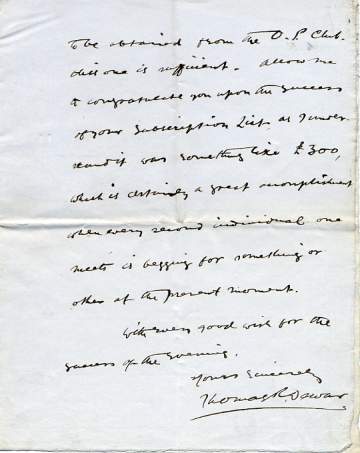 to be obtained from the O.P. Club.
this one is sufficient. Allow me
to congratulate you upon the success
of your Subscription List. as I under
stand it was something like £300,
which is certainly a great accomplishment
when every second individual one
meets is begging for something or
other at the present moment.
With every good wish for the
success of the Evening.
Yours Sincerely
Thomas R. Dewar